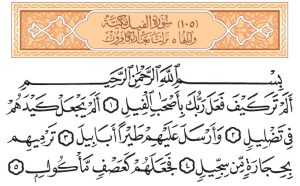 (١٠٥) سُورَةُ الفِيلِ مَكِّيَّة
وَآيَاتُهَا ٥ نَزَلَتْ بَعْدَ الكَافِرُونَ
بِسْمِ ٱللَّهِ ٱلرَّحْمَٰنِ ٱلرَّحِيمِ
أَلَمْ تَرَ كَيْفَ فَعَلَ رَبُّكَ بِأَصْحَٰبِ ٱلْفِيلِ ١ أَلَمْ يَجْعَلْ كَيْدَهُمْ
فِى تَضْلِيلٍ ٢ وَأَرْسَلَ عَلَيْهِمْ طَيْرًا أَبَابِيلَ ٣ تَرْمِيهِم
بِحِجَارَةٍ مِّن سِجِّيلٍ ٤ فَجَعَلَهُمْ كَعَصْفٍ مَّأْكُولٍۭ ٥